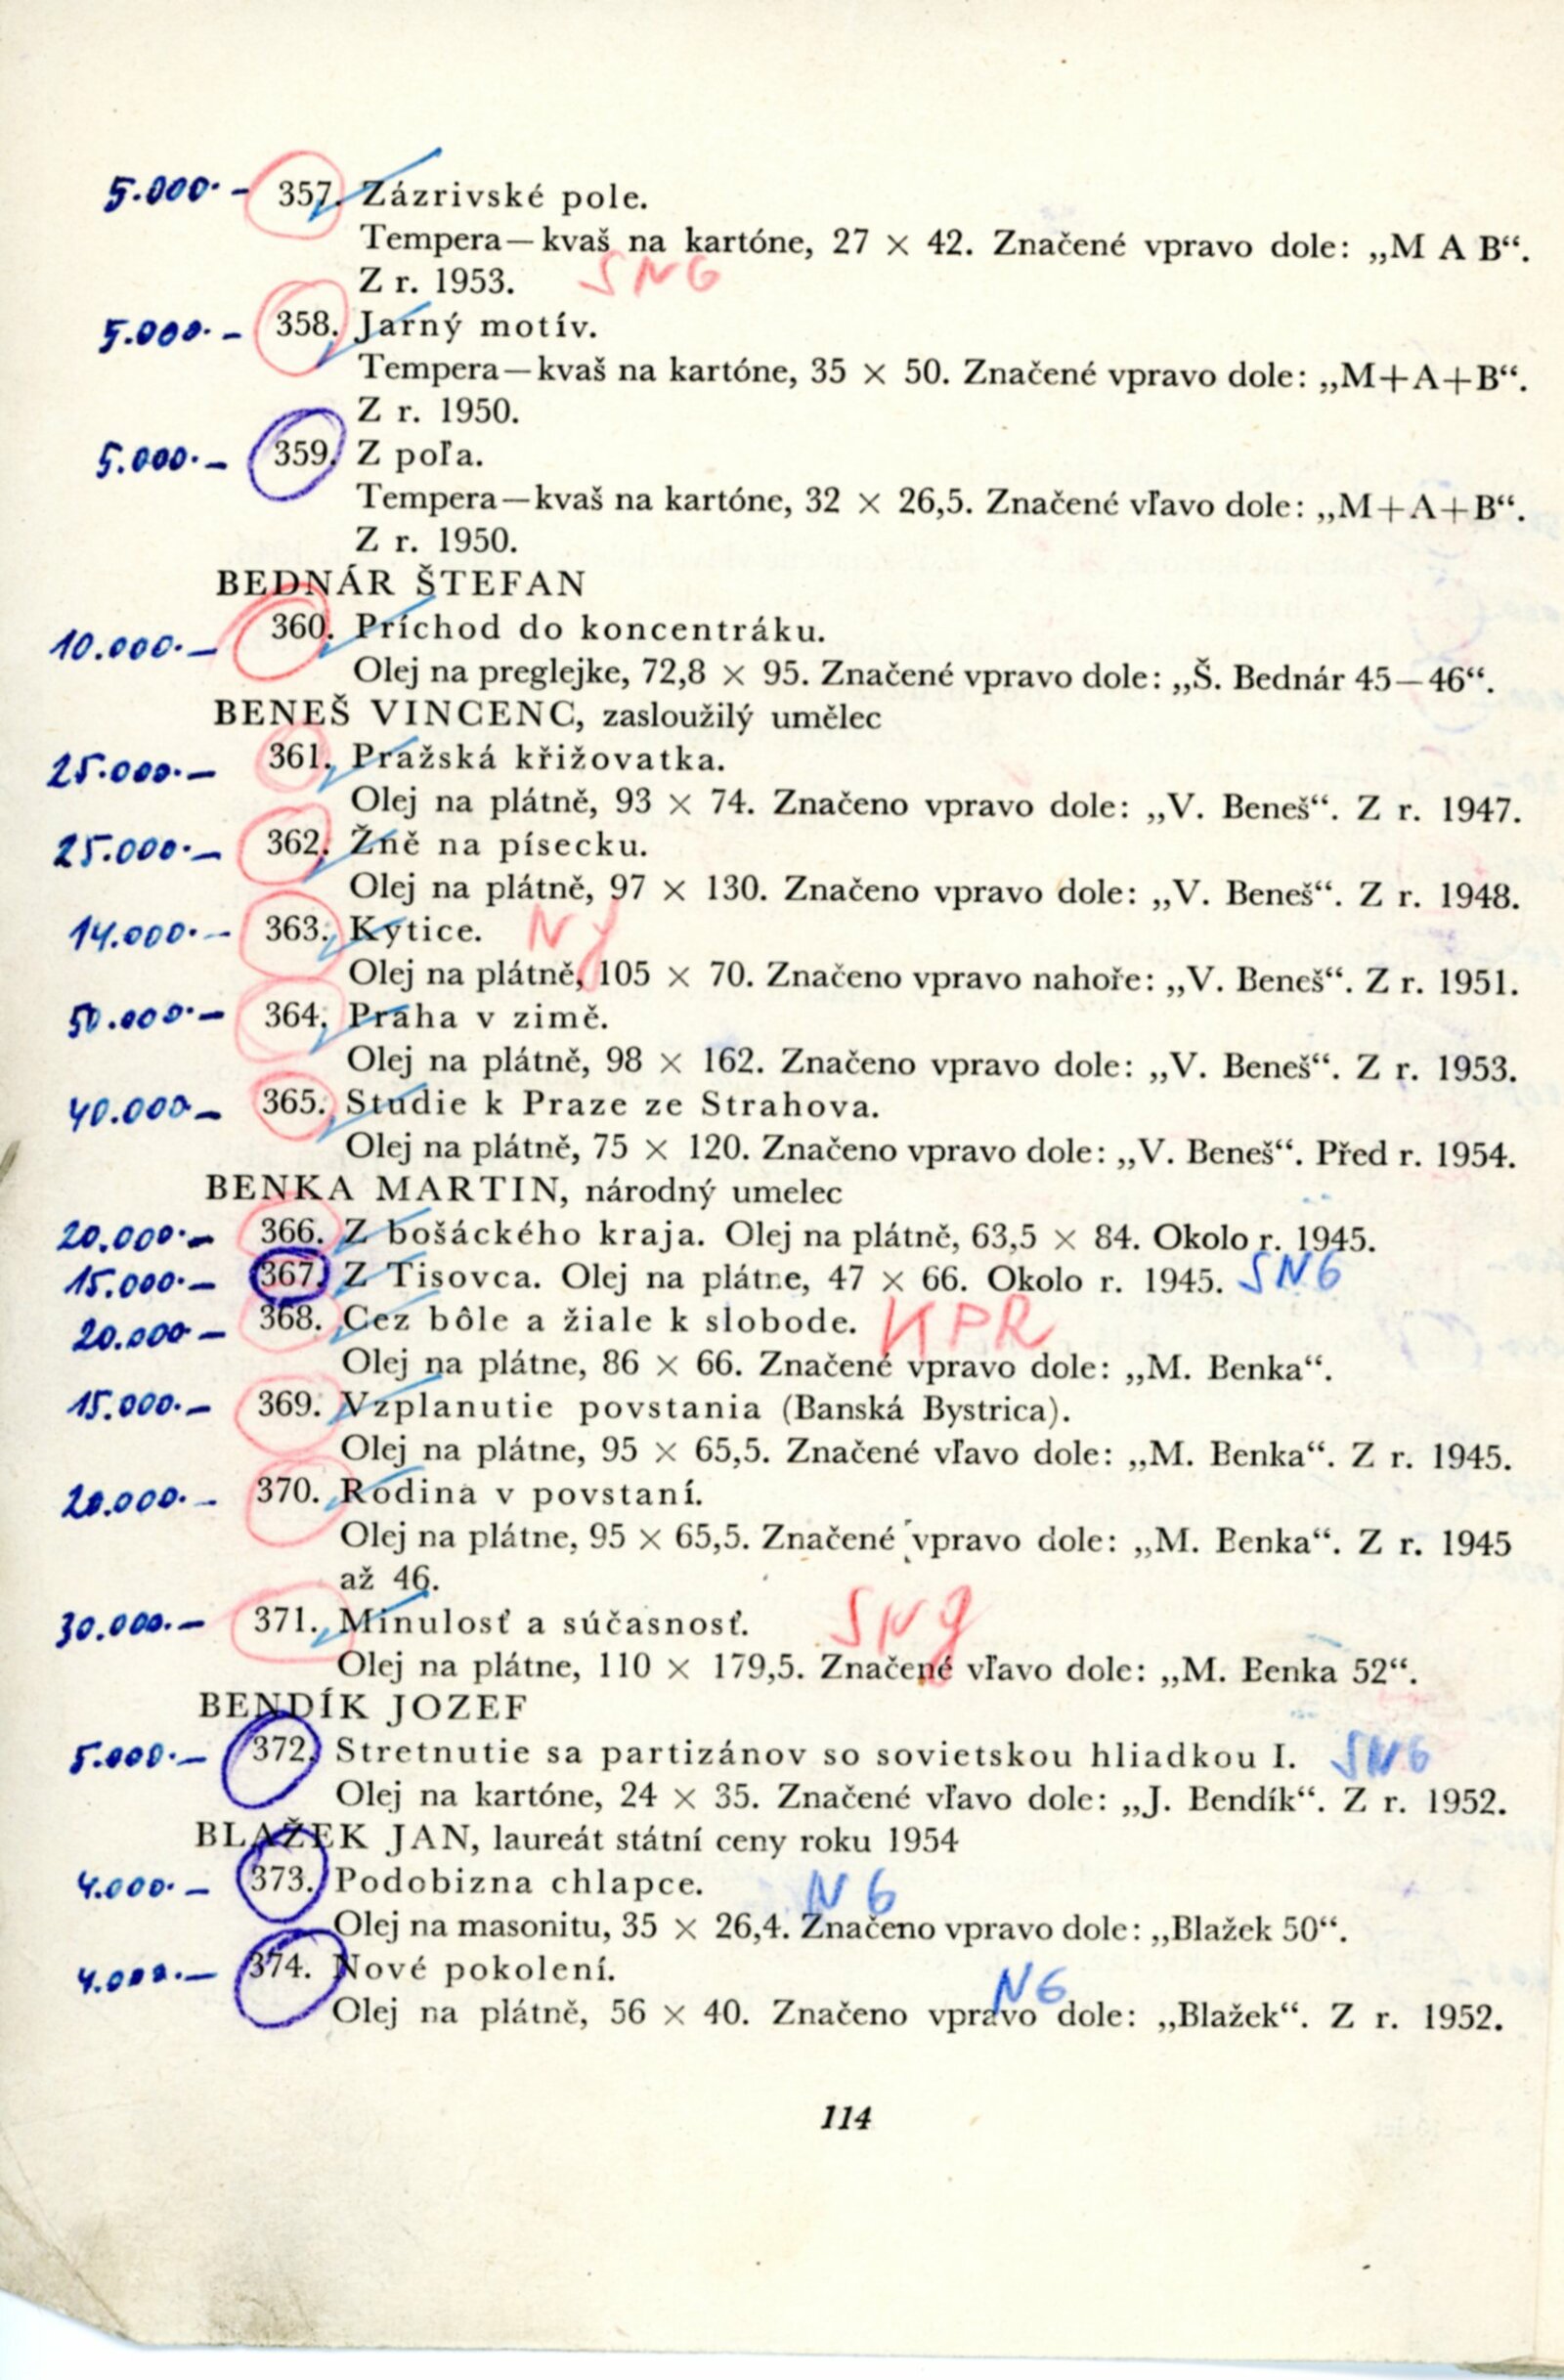 5.000.- 357. Zázrivské pole.
Tempera—kvaš na kartóne, 27 × 42. Značené vpravo dole: „M A B“.
Z r. 1953. SNG
5.000.- 358. Jarný motív.
Tempera—kvaš na kartóne, 35 × 50. Značené vpravo dole: „M+A+B“.
Z r. 1950.
5.000.- 359. Z poľa.
Tempera—kvaš na kartóne, 32 × 26,5. Značené vľavo dole: „M+A+B“.
Z r. 1950.
BEDNÁR ŠTEFAN
10.000.- 360. Príchod do koncentráku.
Olej na preglejke, 72,8 × 95. Značené vpravo dole: „Š. Bednár 45—46“.
BENEŠ VINCENC, zasloužilý umělec
25.000.- 361. Pražská křižovatka.
Olej na plátně, 93 × 74. Značeno vpravo dole: „V. Beneš“. Z r. 1947.
25.000.- 362. Žně na písecku.
Olej na plátně, 97 × 130. Značeno vpravo dole: „V. Beneš“. Z r. 1948.
14.000.- 363. Kytice. Ng
Olej na plátně, 105 × 70. Značeno vpravo nahoře: „V. Beneš“. Z r. 1951.
50.000.- 364. Praha v zimě.
Olej na plátně, 98 × 162. Značeno vpravo dole: „V. Beneš“. Z r. 1953.
40.000- 365. Studie k Praze ze Strahova.
Olej na plátně, 75 × 120. Značeno vpravo dole: „V. Beneš“. Před r. 1954.
BENKA MARTIN, národný umelec
20.000.- 366. Z bošáckého kraja. Olej na plátně, 63,5 × 84. Okolo r. 1945.
15.000.- 367. Z Tisovca. Olej na plátne, 47 × 66. Okolo r. 1945. SNG
20.000- 368. Cez bôle a žiale k slobode. KPR
Olej na plátne, 86 × 66. Značené vpravo dole: „M. Benka“.
15.000.- 369. Vzplanutie povstania (Banská Bystrica).
Olej na plátne, 95 × 65,5. Značené vľavo dole: „M. Benka“. Z r. 1945.
20.000.- 370. Rodina v povstaní.
Olej na plátne, 95 × 65,5. Značené vpravo dole: „M. Benka“. Z r. 1945
až 46.
30.000.- 371. Minulosť a súčasnosť. SNg
Olej na plátne, 110 × 179,5. Značené vľavo dole: „M. Benka 52“.
BENDÍK JOZEF
5.000.- 372. Stretnutie sa partizánov so sovietskou hliadkou I. SNG
Olej na kartóne, 24 × 35. Značené vľavo dole: „J. Bendík“. Z r. 1952.
BLAŽEK JAN, laureát státní ceny roku 1954
4.000.- 373. Podobizna chlapce. NG
Olej na masonitu, 35 × 26,4. Značeno vpravo dole: „Blažek 50“.
4.000.- 374. Nové pokolení. NG
Olej na plátně, 56 × 40. Značeno vpravo dole: „Blažek“. Z r. 1952.
114